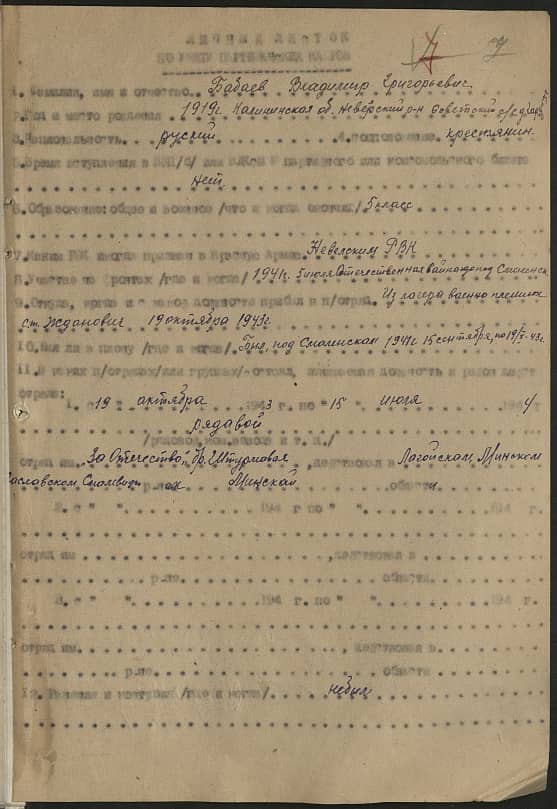 ЛИЧНЫЙ ЛИСТОК
ПО УЧЕТУ ПАРТИЗАНСКИХ КАДРОВ
1. Фамилия, имя и отчество Бабаев Владимир Григорьевич
2. Год и место рождения 1919г. Калининская об. Неверский р-н Советский с/с
3. Национальность руский 4. соцположение крестянин
5. Время вступления в ВКП/б/ или ВЛКСМ № партийного или комсомольского билета
нет
6. Образование: общее и военное /что и когда окончил/ 5 класс
7. Каким РВК и когда призван в Красную Армию Невелским РВК
8. Участие на фронтах /где и когда/ 1941г. Отечественная война под Смоленск
9. Откуда, когда и с какой должности прибыл в п/отряд. Из лагеря военно пленных
ст. Жданович 19 октября 1943г
10. Был ли в плену /где и когда/. Был под Смаленском 1941г 15 сентября, по 19/X-43г.
11. В каких п/отрядах/или группах/ состоял, занимаемая должность и район дейст
отряда:
1. с "19 октября 1943 г. по "15 июля 1944 г
рядавой
/рядовой, ком. взвода и т. п./
отряд им. „За Отечество" бр. Штурмовая, действовал в Лагойском, Минском
Заславском р-нах Минской области
2. с " " 194 г. по " " 194 г.
отряд им , действовал в
р-не области
3. с " " 194 г. по " " 194 г.
отряд им. , действовал в
р-не области
12. Ранения и контузии /где и когда/ небыл